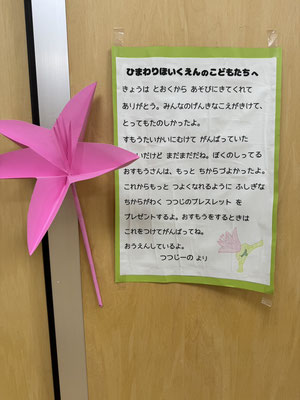 ひまわりほいくえんのこどもたちへ
きょうは とおくから あそびにきてくれて
ありがとう。みんなのげんきなこえがきけて、
とってもたのしかったよ。
すもうたいかいにむけて がんばっていた
いだけど まだまだだね。ぼくのしってる
おすもうさんは、もっと ちからづよかったよ。
これからもっと つよくなれるように ふしぎな
ちからがわく つつじのブレスレット を
プレゼントするよ。おすもうをするときは
これをつけてがんばってね。
おうえんしているよ。
つつじーの より